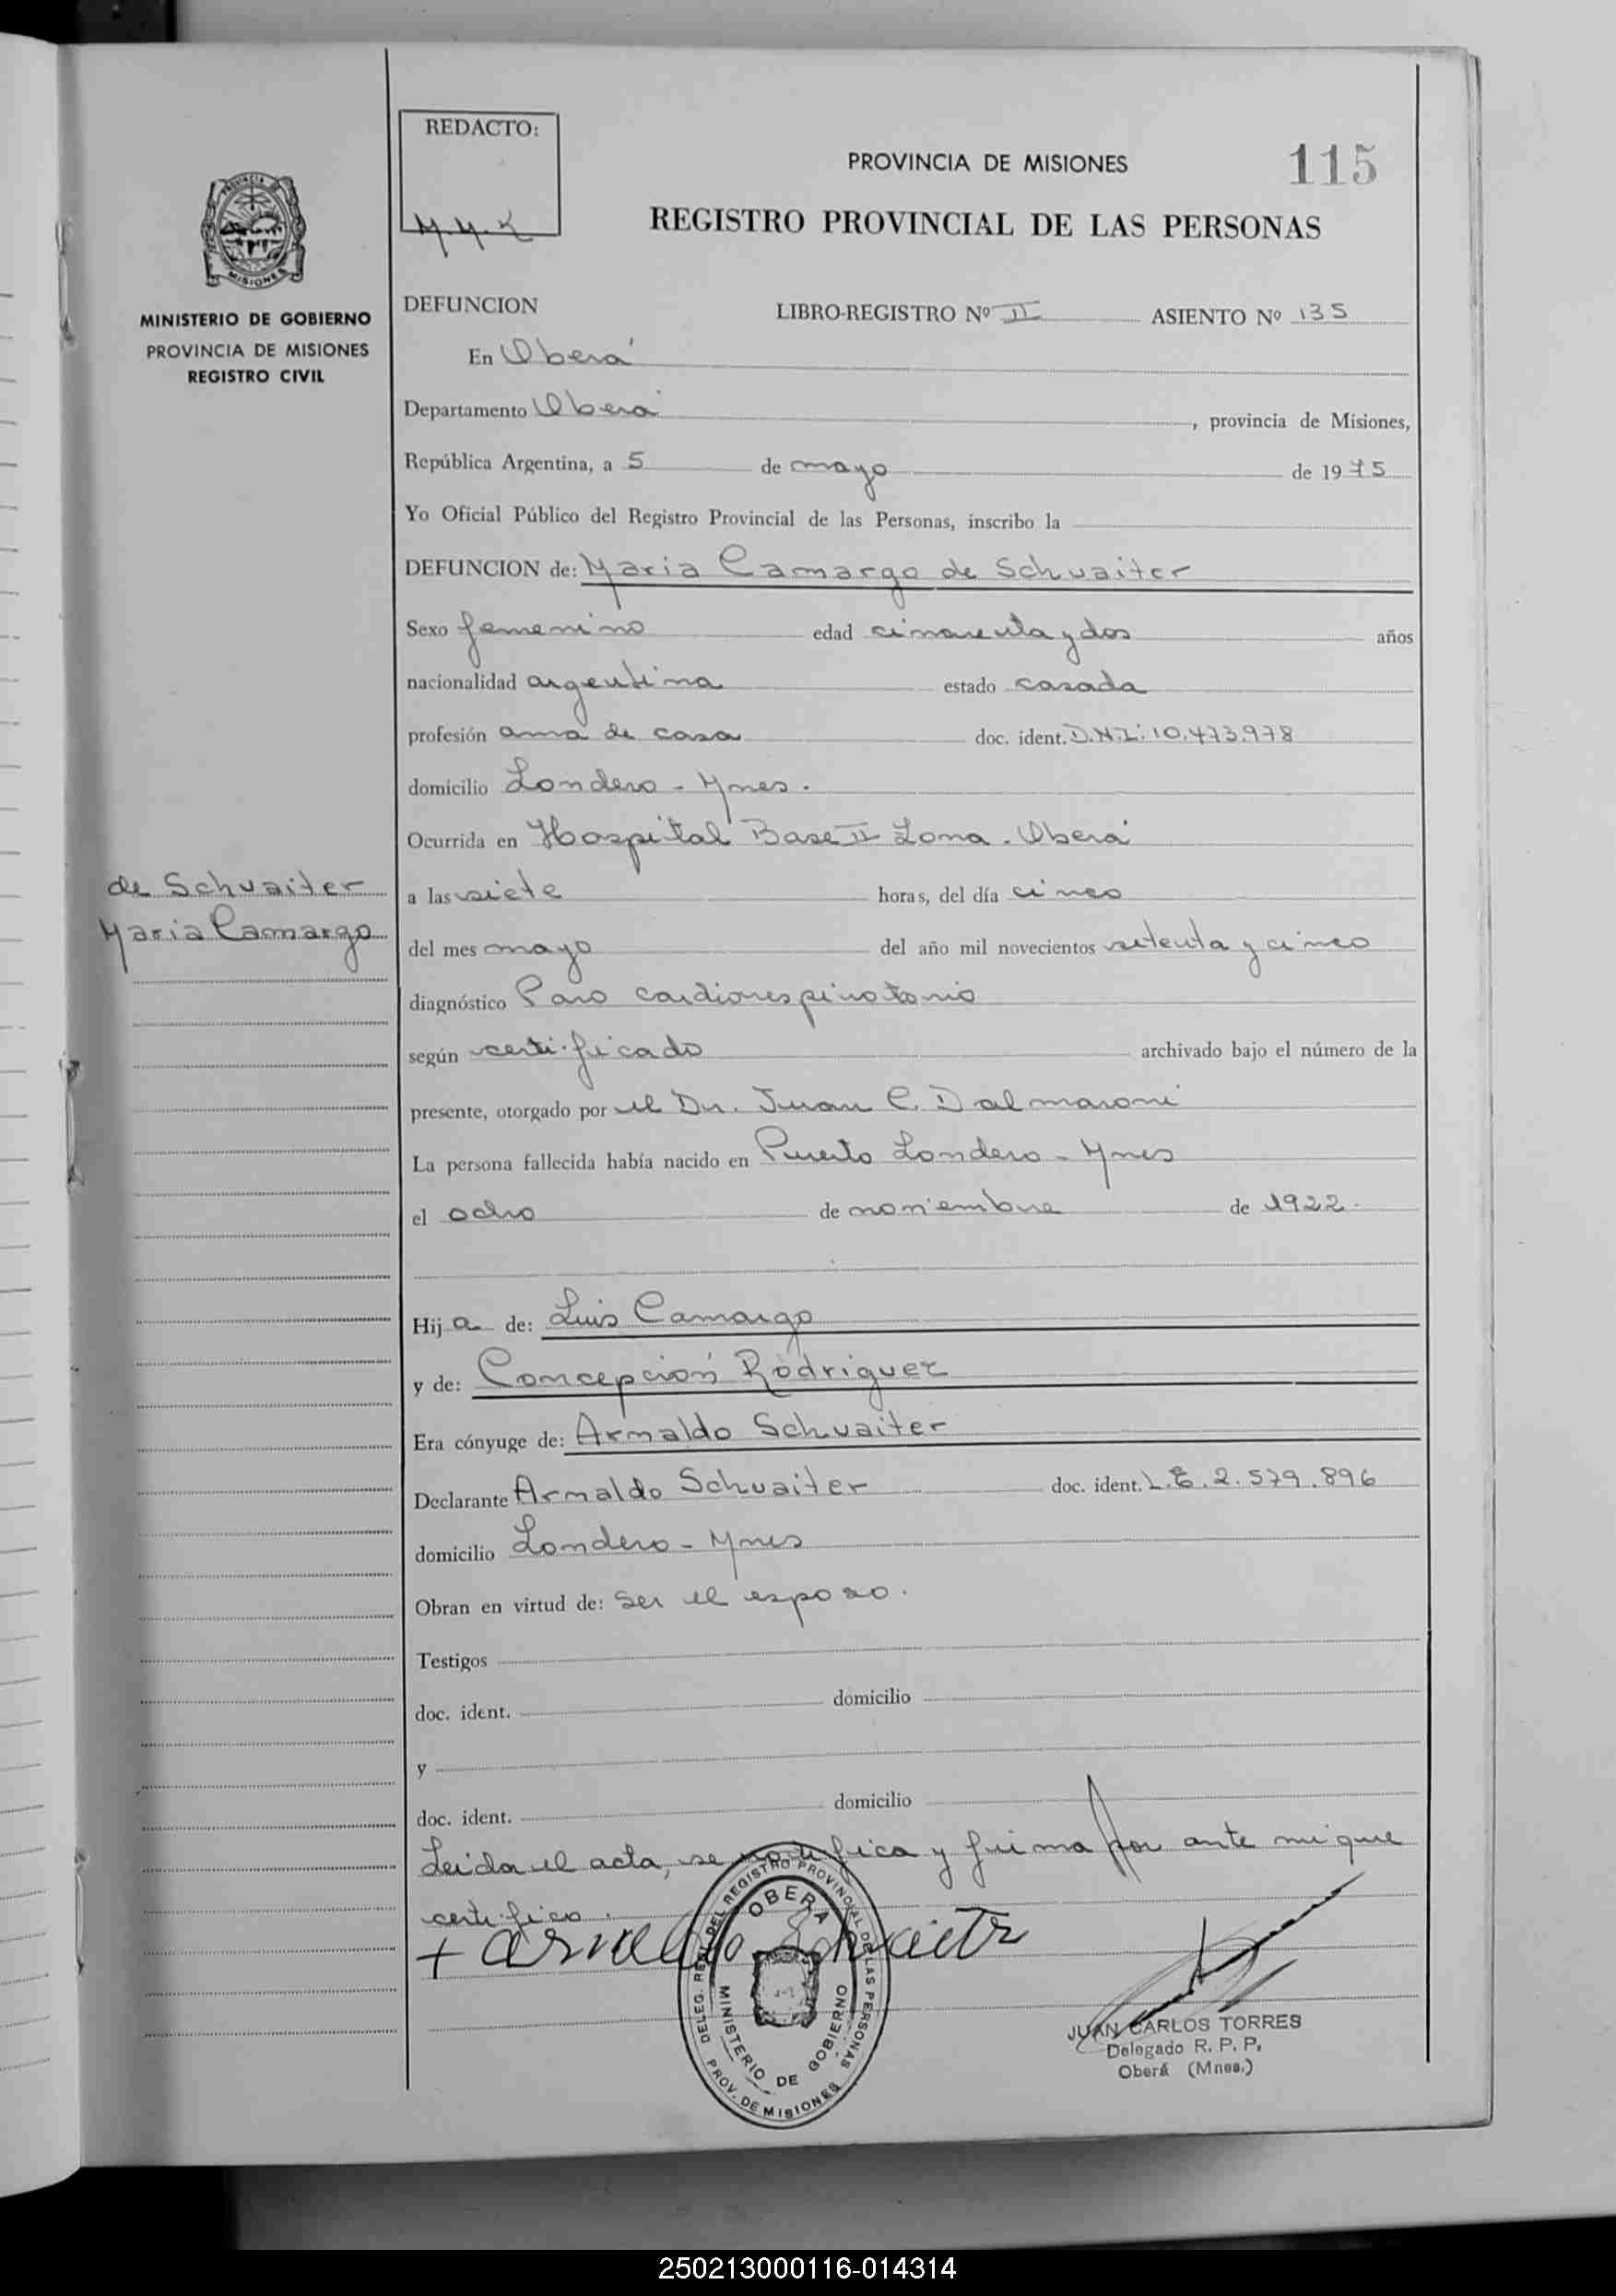 REDACTO:
M.M.K
PROVINCIA DE MISIONES
115
REGISTRO PROVINCIAL DE LAS PERSONAS
PROVINCIA DE
MISIONES
MINISTERIO DE GOBIERNO
PROVINCIA DE MISIONES
REGISTRO CIVIL
DEFUNCION LIBRO-REGISTRO Nº II ASIENTO Nº 135
En Oberá
Departamento Oberá, provincia de Misiones,
República Argentina, a 5 de mayo de 1975
Yo Oficial Público del Registro Provincial de las Personas, inscribo la
DEFUNCION de: Maria Camargo de Schvaiter
Sexo femenino edad cincuenta y dos años
nacionalidad argentina estado casada
profesión ama de casa doc. ident. D.N.I: 10.473.978
domicilio Londero - Mnes.
Ocurrida en Hospital Base II Zona - Oberá
de Schvaiter
Maria Camargo
a las siete horas, del día cinco
del mes mayo del año mil novecientos setenta y cinco
diagnóstico Paro cardiorespiratorio
según certificado archivado bajo el número de la
presente, otorgado por el Dr. Juan C. Dalmaroni
La persona fallecida había nacido en Puerto Londero - Mnes
el ocho de noviembre de 1922.
Hija de: Luis Camargo
y de: Concepción Rodriguez
Era cónyuge de: Arnaldo Schvaiter
Declarante Arnaldo Schvaiter doc. ident. L.E. 2.579.896
domicilio Londero - Mnes
Obran en virtud de: ser el esposo.
Testigos
doc. ident. domicilio
y
doc. ident. domicilio
Leida el acta, se notifica y firma por ante mi que
certifico.
+ arnaldo Schvaitr
DELEG. REG. DEL REGISTRO PROVINCIAL DE LAS PERSONAS
OBERA
MINISTERIO DE GOBIERNO
PROV. DE MISIONES
JUAN CARLOS TORRES
Delegado R. P. P.
Oberá (Mnes.)
250213000116-014314